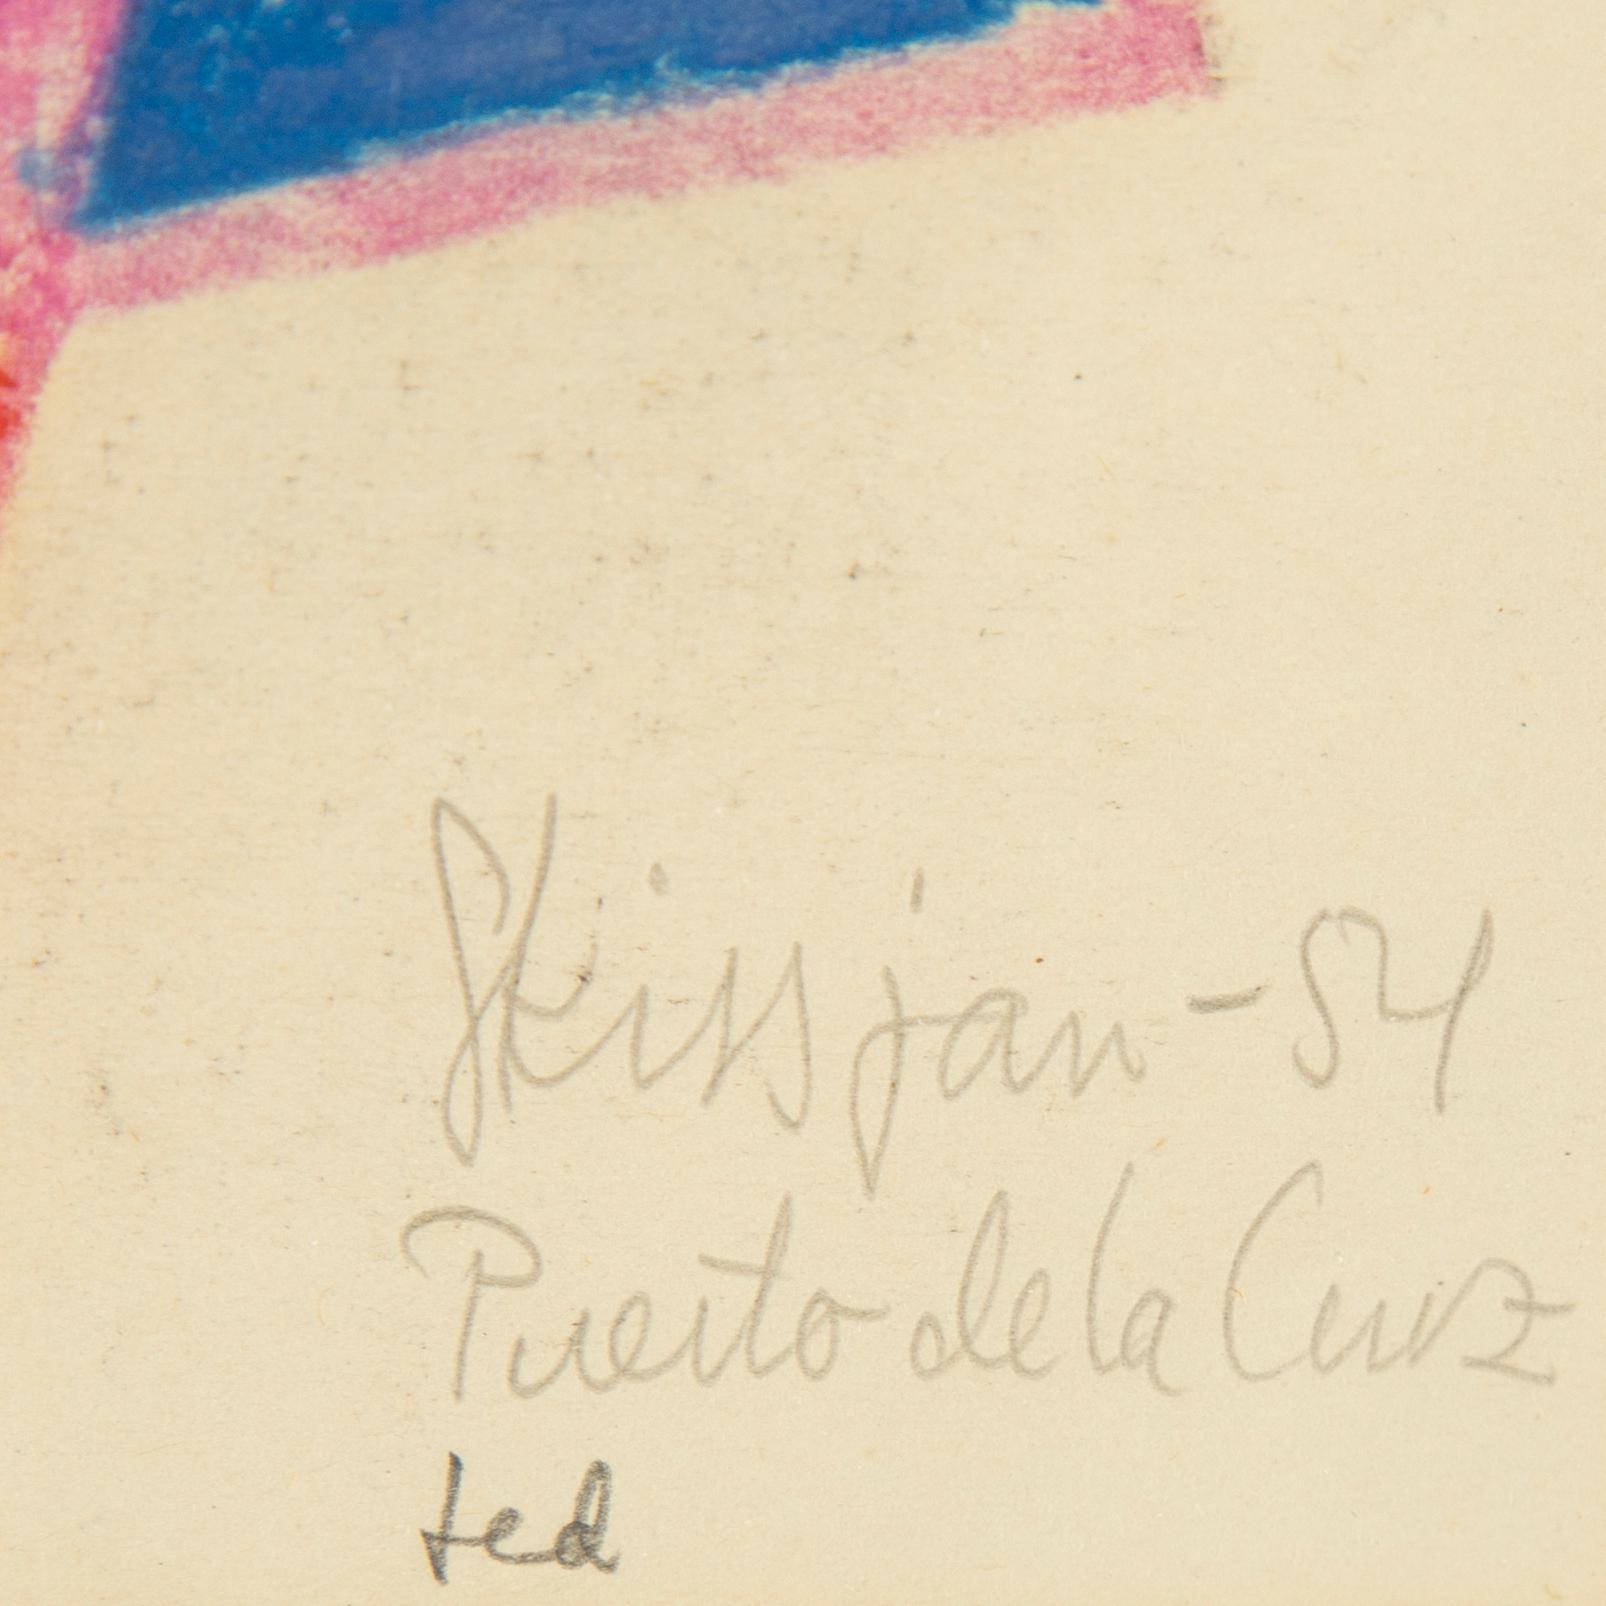 Skiss jan - 54
Puerto de la Cruz
ted